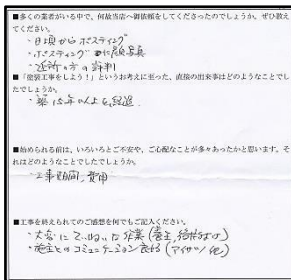 ■多くの業者がいる中で、何故当店へ御依頼をしてくださったのでしょうか。ぜひ教え
てください。
・日頃からポスティング
・ポスティングに顔写真
・近所の方の評判
■「塗装工事をしよう！」というお考えに至った、直接の出来事はどのようなことでし
たでしょうか。
・築15年以上を経過
■始められる前は、いろいろとご不安や、ご心配なことが多々あったかと思います。そ
れはどのようなことでしたでしょうか。
・工事期間、費用
■工事を終えられてのご感想を何でもご記入ください。
・大変にていねいな作業(養生、
・施主とのコミュニケーション良好(アイサツ他)